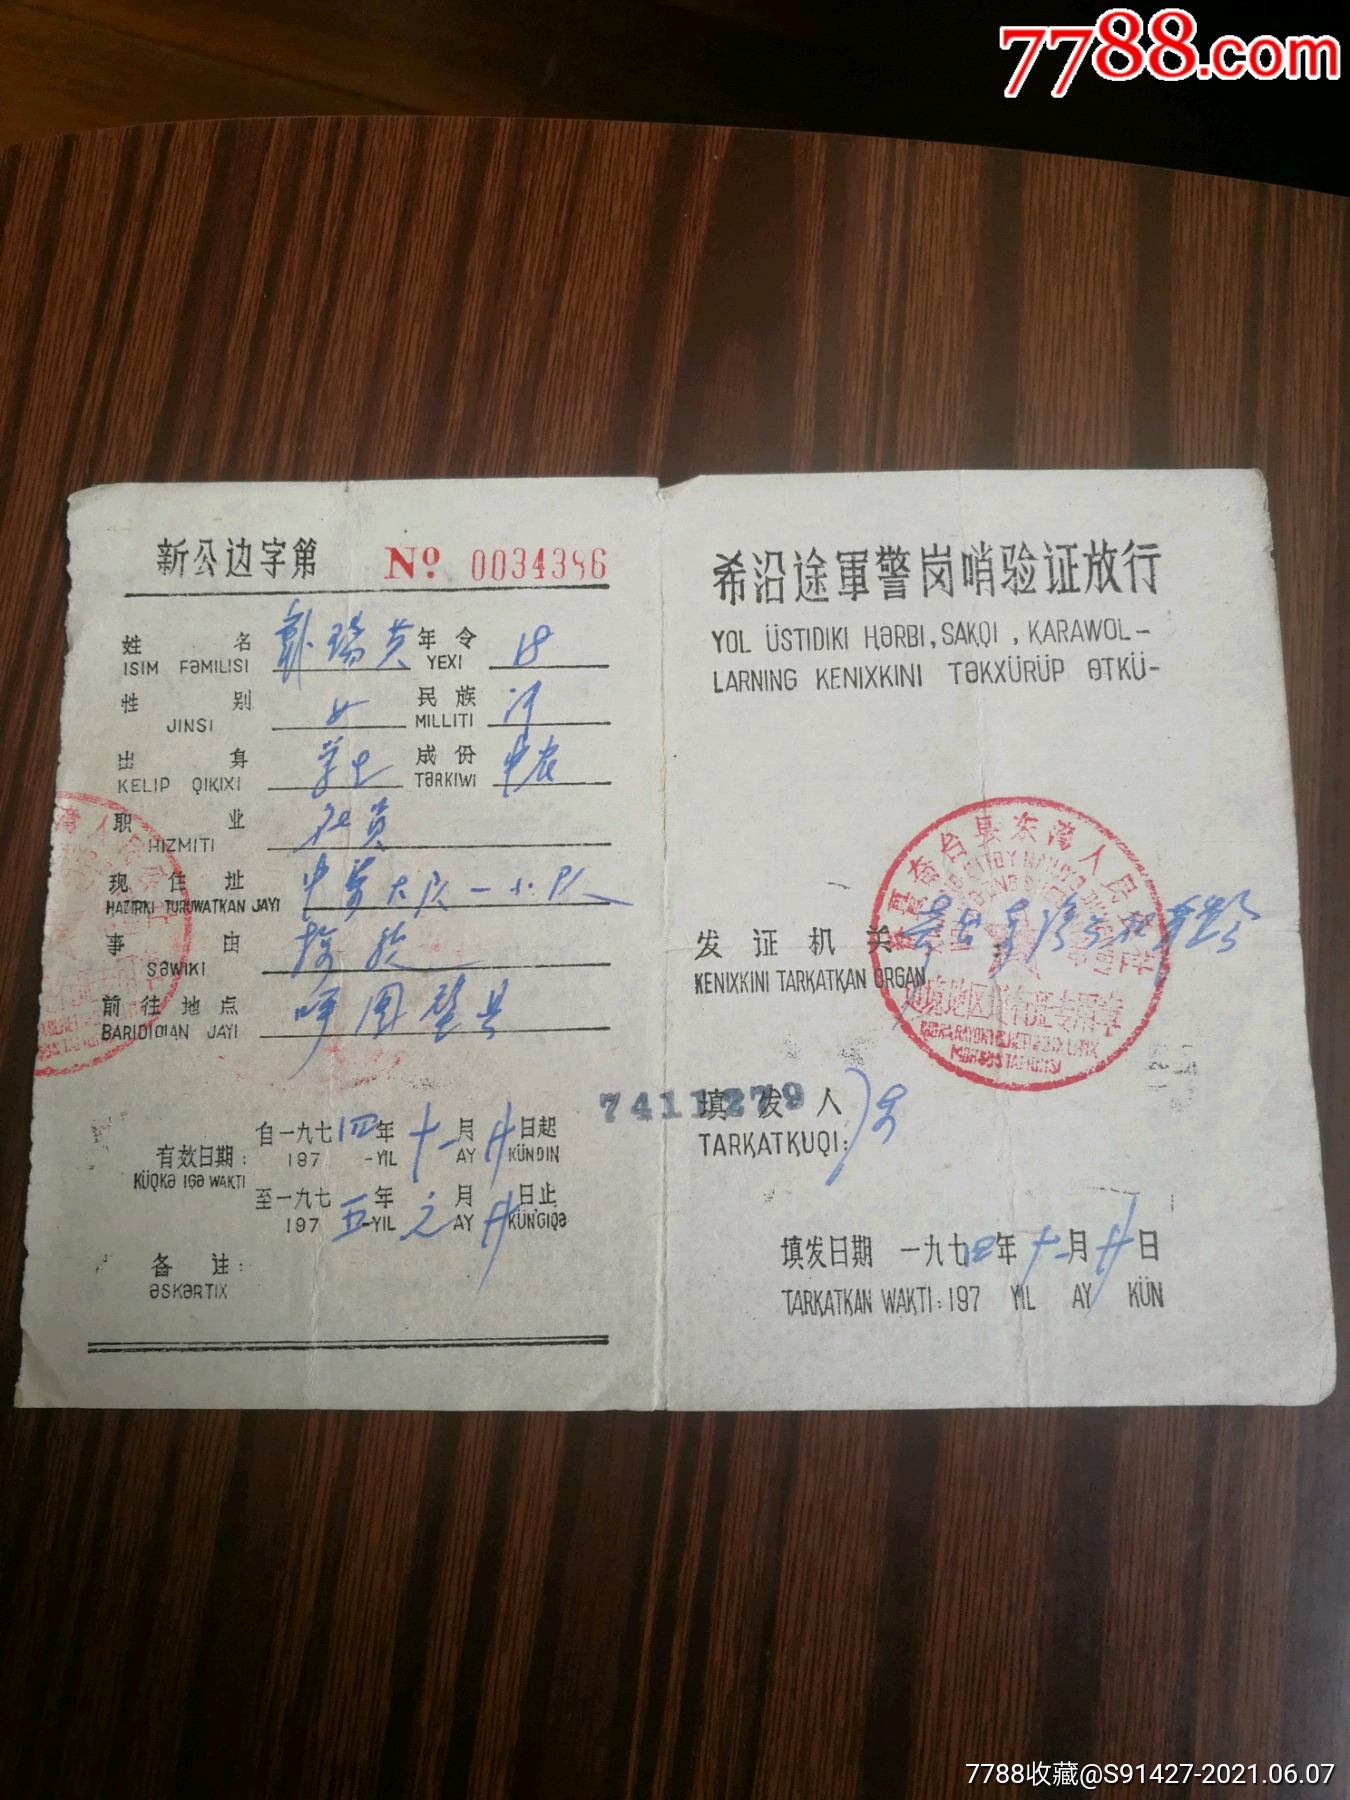 7788.com
新公边字第 № 0034386
姓名 戴瑞芳 年令 18
ISIM FƏMILISI YEXI
性别 女 民族 汉
JINSI MILLITI
出身 学生 成份 中农
KELIP QIⱪIXI TƏRKIWI
职业 社员
HIZMITI
现住址 中 大队一小队
HAZIRⱪI TURUWATⱪAN JAYI
事由 探亲
SƏWIKI
前往地点 呼图壁县
BARIDIƢAN JAYI
有效日期: 自一九七四年十一月廿日起
KÜQKƏ IGƏ WAKTI 197 -YIL AY KÜNDIN
至一九七五年元月廿日止
197 -YIL AY KÜN'GIQƏ
备注:
ƏSKƏRTIX
希沿途軍警岗哨验证放行
YOL ÜSTIDIKI ⱨƏRBI, SAKQI, ⱪARAWOL-
LARNING KENIXKINI TƏKXÜRÜP ɵTKÜ-
奇台县东湾人民公社
边境地区通行证专用章
发证机关
KENIXKINI TARⱪATⱪAN ORGAN
7411279
填发人
TARⱪATⱪUQI:
填发日期 一九七四年十一月廿日
TARⱪATⱪAN WAⱪTI: 197 YIL AY KÜN
7788收藏@S91427-2021.06.07